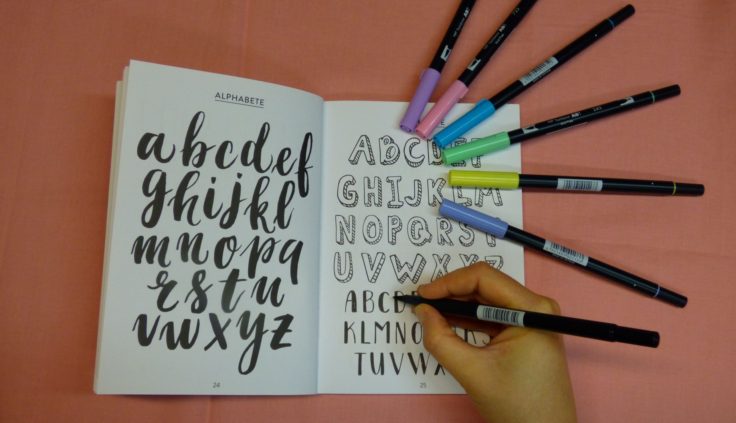 ALPHABETE
abcdef
ghijkl
mnopq
rstu
vwxyz
24
ABCDEF
GHIJKLM
NOPQRST
UVWXYZ
ABCD
KLMNO
TUVWX
25